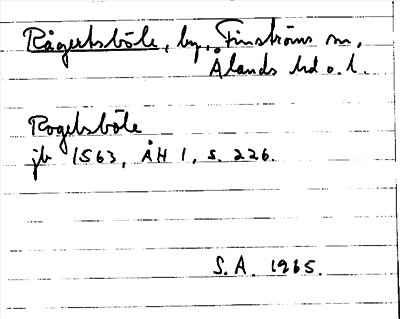 Rågertsböle, by, Finströms sn,
Ålands hd o. l.
Rogelsböle
jb 1563, ÅH 1, s. 226.
S.A. 1965.